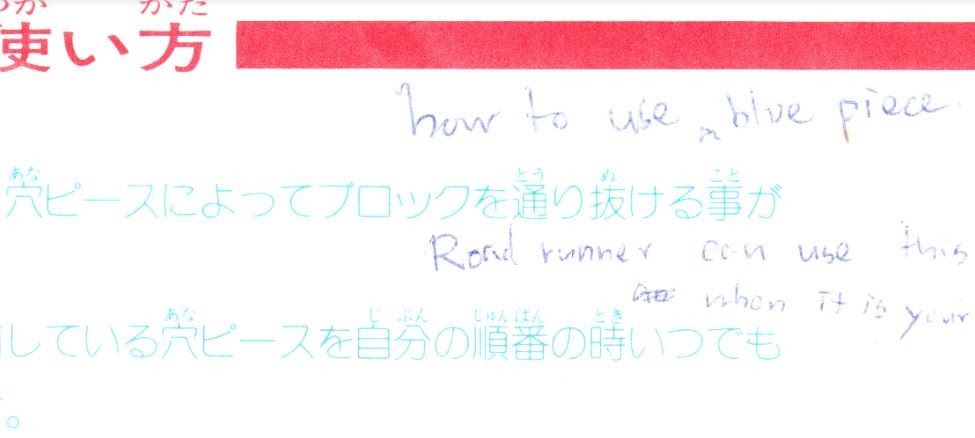 使い方
how to use a blue piece.
穴ピースによってブロックを通り抜ける事が
Road runner can use this
when it is your
している穴ピースを自分の順番の時いつでも
。